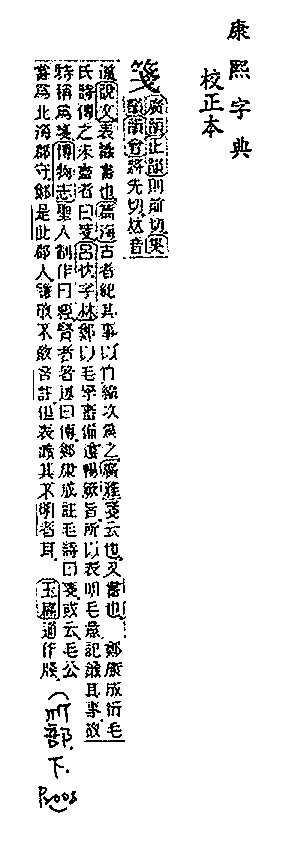 康熙字典
校正本
箋
廣韻正韻則前切集
韻韻會將先切𠀤音
湔說文表識書也篇海古者紀其事以竹編次爲之廣雅箋云也又書也 鄭康成衍毛
氏詩傳之未盡者曰箋呂忱字林鄭以毛學審備遵暢厥旨所以表明毛意記識其事故
特稱爲箋博物志聖人制作曰經賢者著述曰傳鄭康成註毛詩曰箋或云毛公
嘗爲北海郡守鄭是此郡人謙敬不敢言註但表識其不明者耳 玉篇通作牋
(竹部.下.